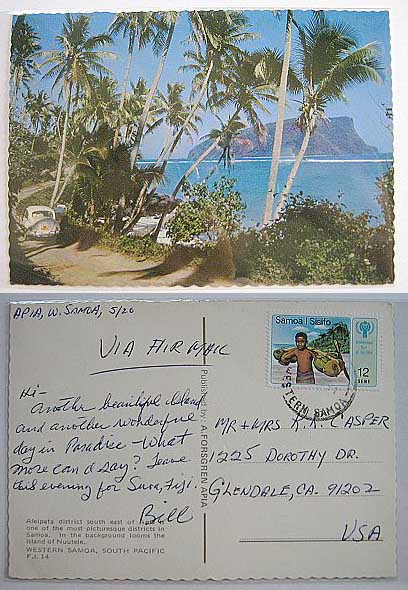 APIA, W. SAMOA, 5/20
VIA AIR MAIL
Hi-
Another beautiful island
and another wonderful
day in Paradise - What
more can I say? Leave
this evening for Suva, Fiji.
Bill
Aleipata district south east of Apia is
one of the most picturesque districts in
Samoa. In the background looms the
Island of Nuutele.
WESTERN SAMOA, SOUTH PACIFIC
F.I. 14
Published by: A. FORSGREN APIA
Samoa I Sisifo
12
SENE
WESTERN SAMOA
MR + MRS K. K. CASPER
1225 DOROTHY DR.
GLENDALE, CA. 91202
USA